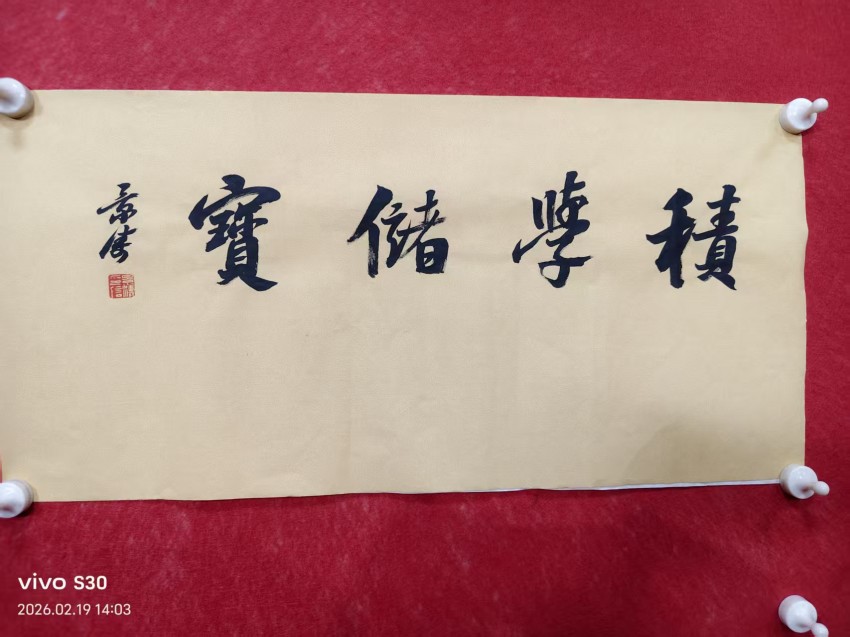 積學儲寶
vivo S30
2026.02.19 14:03